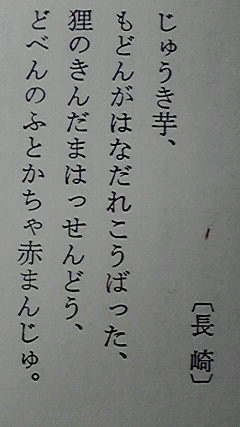 じゅうき芋、
もどんがはなだれこうばった、
狸のきんだまはっせんどう、
どべんのふとかちゃ赤まんじゅ。
〔長崎〕